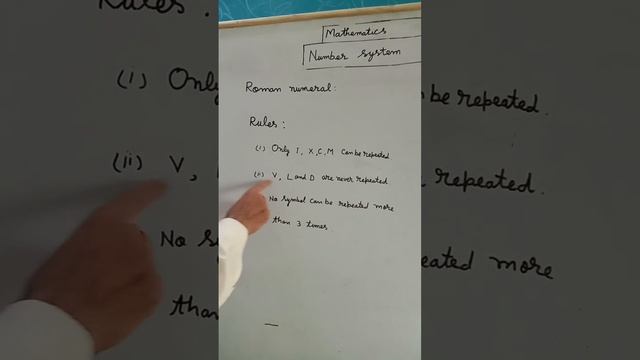 Mathematics
Number system
Roman numeral:
Rules:
(i) Only I, X, C, M Can be repeated
(ii) V, L and D are never repeated
No symbol can be repeated more
than 3 times